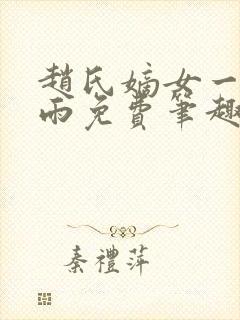 趙氏嫡女一
雨免費筆趣
秦禮萍